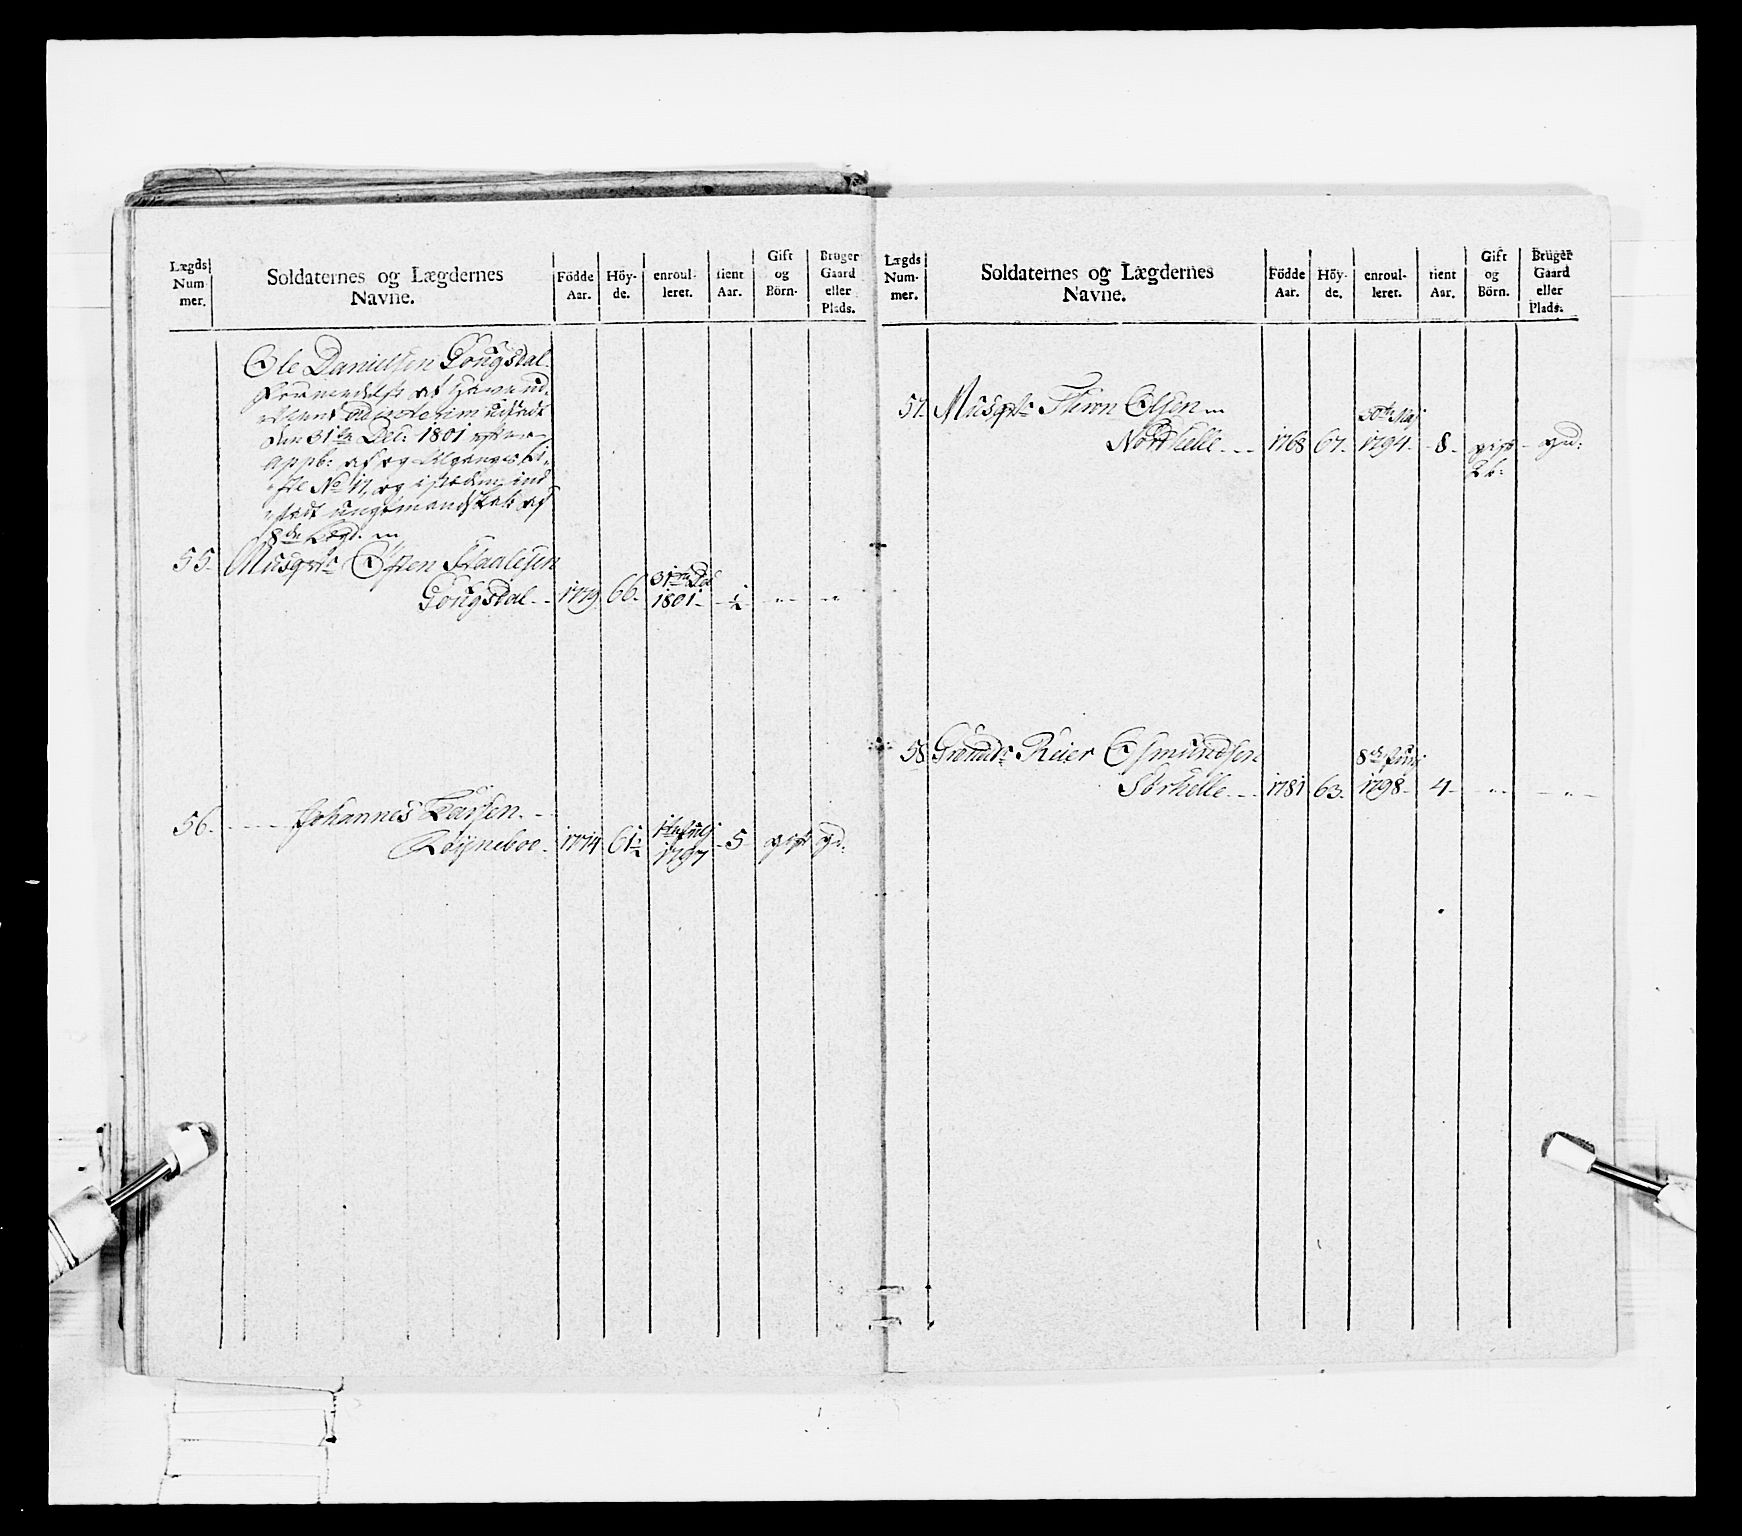 Lægds Num- mer.
Soldaternes og Lægdernes Navne.
Födde Aar.
Höy- de.
enroul- leret.
tient Aar.
Gift og Börn.
Bruger Gaard eller Plads.
Ole Danielsen Gougsdal
ad interim
den 31te Dec: 1801
appb: af og tilgangs Li-
No 17, og
ungemandskab af
8de Lægd.
55. Musqvtr Osten Staalesen
Gougsdal 1779 66 31te Dec 1801 ½
56. Johannes Larsen
Løyneboe 1774 61½ Julj 1797 5 gift gd:
Lægds Num- mer.
Soldaternes og Lægdernes Navne.
Födde Aar.
Höy- de.
enroul- leret.
tient Aar.
Gift og Börn.
Bruger Gaard eller Plads.
57. Musqvtr Olsen
Nordhelle 1768 67 1794 8 gift gd:
2 b:
58 Reier Osmundsen
Sörhelle 1781 63 8de Junj 1798 4